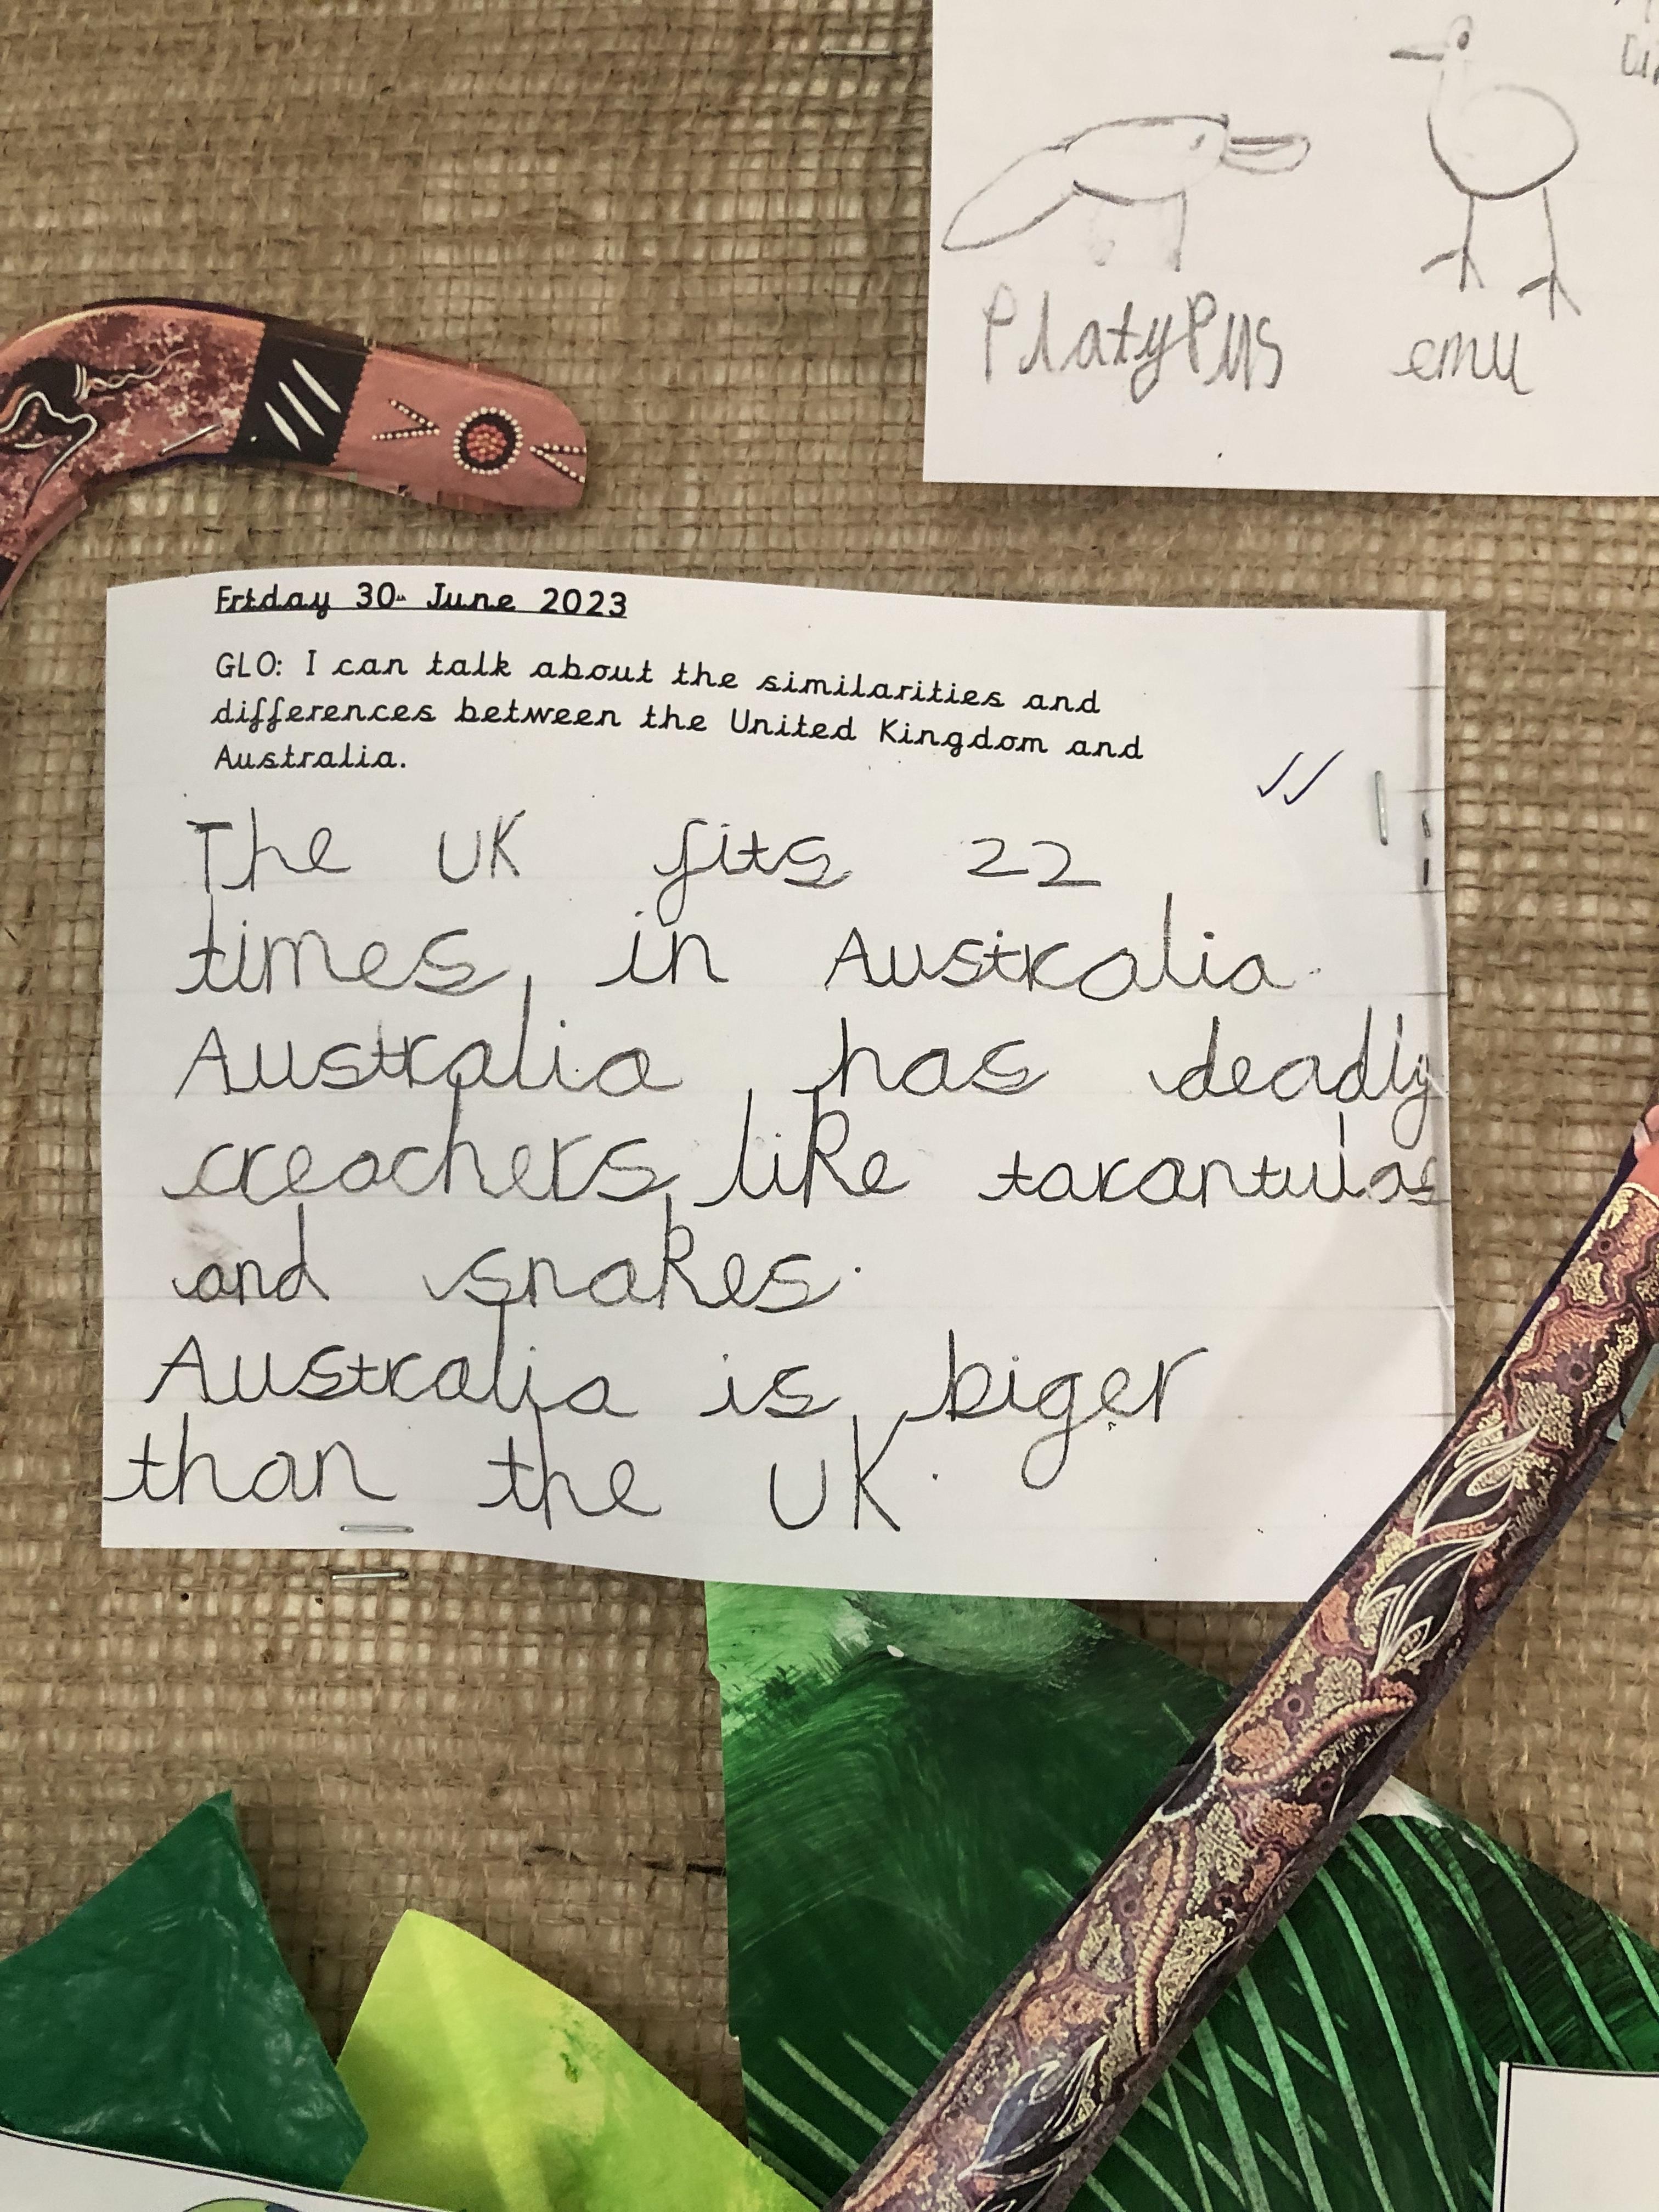 PlatyPus emu
Friday 30th June 2023
GLO: I can talk about the similarities and
differences between the United Kingdom and
Australia.
The UK fits 22
times in Australia.
Australia has deadly
creachers like tarantulas
and snakes.
Australia is biger
than the UK.